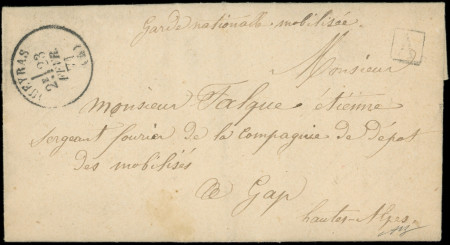 Garde nationale mobilisée.
VEYRAS
2E
23
FEVR
71
Monsieur
Monsieur Falque étienne
sergeant fourier de la Compagnie de Dépot
des mobilisés
à Gap
hautes-Alpes